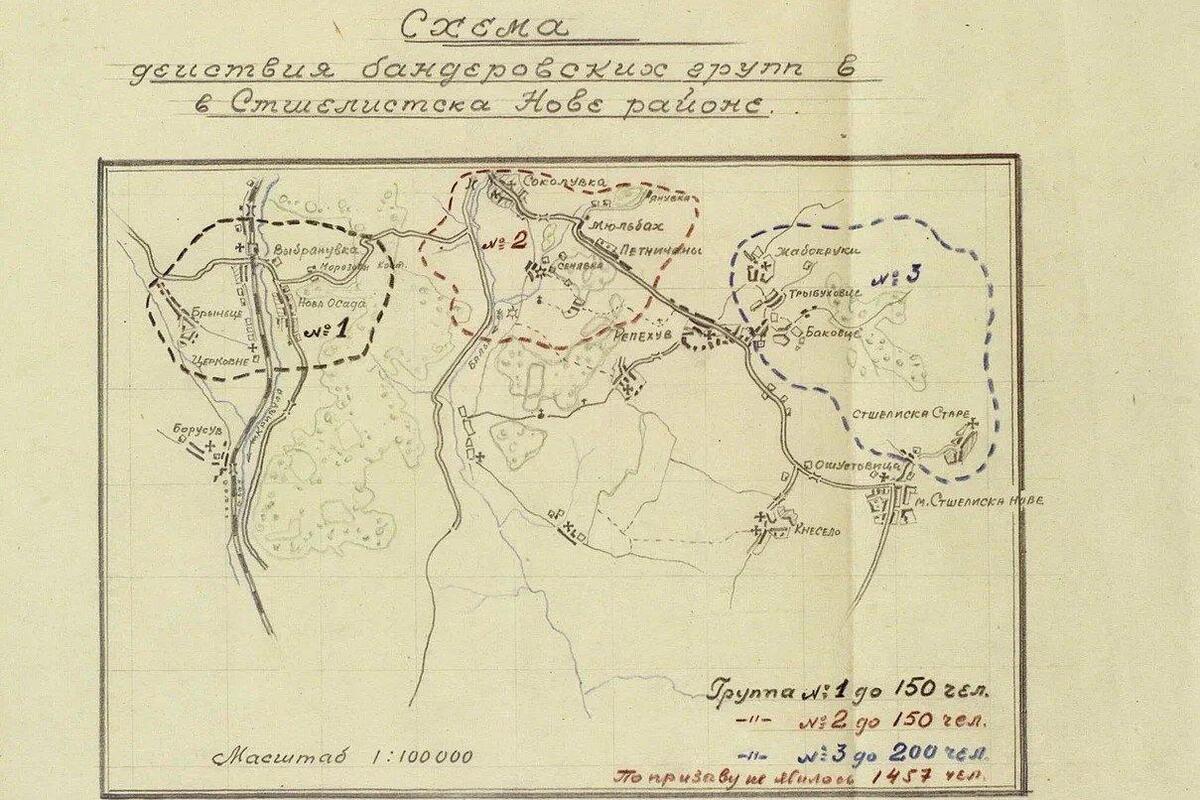 Схема
действия бандеровских групп в
в Стшелистска Нове районе.
Соколувка
Янувка
Мюльбах
№ 2
Петничаны
Выбранувка
Сенявка
Жабокруки
Морозовы
№ 3
Нова Осада
Трыбуховце
Брыньце
№ 1
Репехув
Баковце
Церковне
Стшелиска Старе
Борусув
Ошустьвица
м. Стшелиска нове
Кнесело
Группа № 1 до 150 чел.
-"- № 2 до 150 чел.
Масштаб 1:100000
-"- № 3 до 200 чел.
По призаву не явилось 1457 чел.